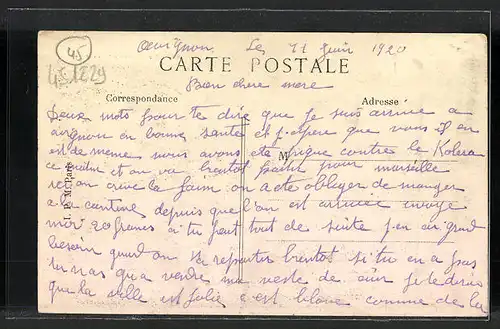 49
48229
Avignon Les 11 juin 1920
CARTE POSTALE
Bien chere mere
Correspondance
Adresse
Deux mots pour te dire que je suis arrivé a
avignon en bonne santé et j'espere que vous il en
est de meme nous avons ete piqué contre le Kolera
ce matin et on va bientot partir pour marseille
ici on creve la faim on a ete obliger de manger
a la cantine depuis que l'on est arrivée envoye
moi 20 francs a tu peut tout de suite j'en ai grand
besoin quand on va repartir bientot si tu en a pas
tu n'as qu'a vendre ma veste de cuir je te dirais
que la ville est jolie c'est blanc comme de la
M
I. P. M. Paris